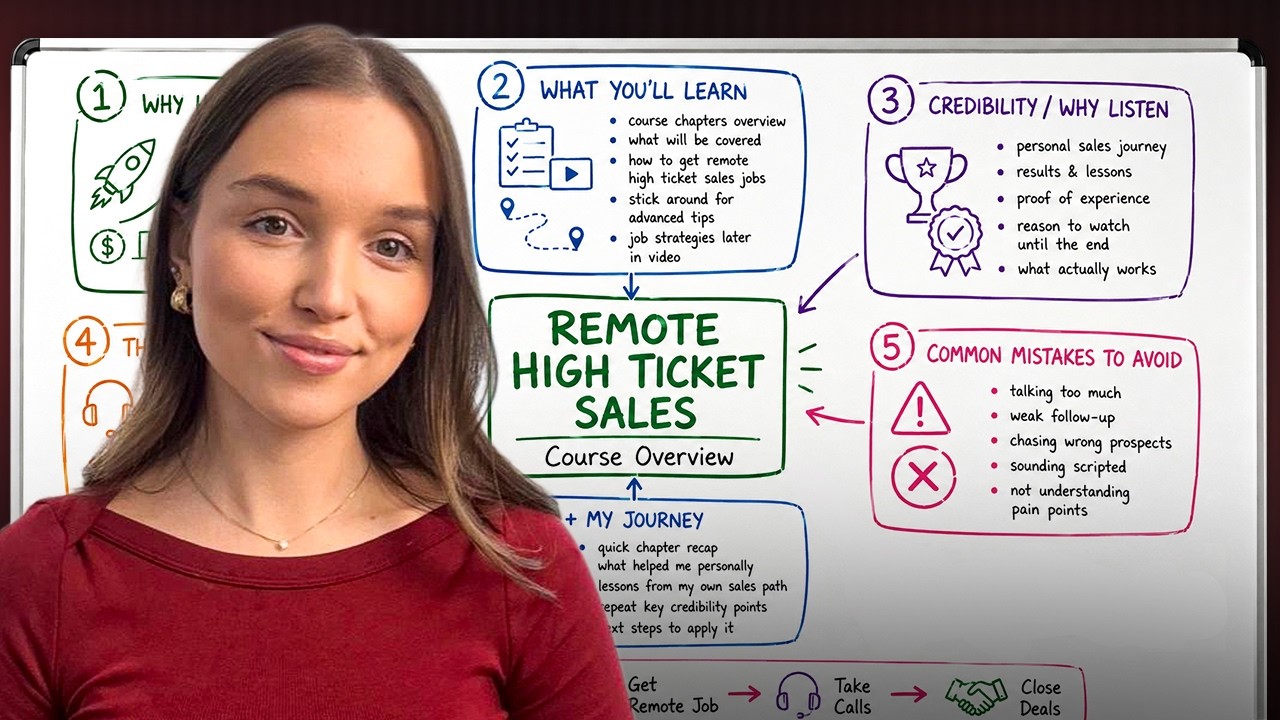 1 WHY
2 WHAT YOU'LL LEARN
• course chapters overview
• what will be covered
• how to get remote
high ticket sales jobs
• stick around for
advanced tips
• job strategies later
in video
3 CREDIBILITY / WHY LISTEN
• personal sales journey
• results & lessons
• proof of experience
• reason to watch
until the end
• what actually works
$
4
REMOTE
HIGH TICKET
SALES
Course Overview
5 COMMON MISTAKES TO AVOID
• talking too much
• weak follow-up
• chasing wrong prospects
• sounding scripted
• not understanding
pain points
+ MY JOURNEY
• quick chapter recap
what helped me personally
lessons from my own sales path
key credibility points
steps to apply it
Get
Remote Job
Take
Calls
Close
Deals